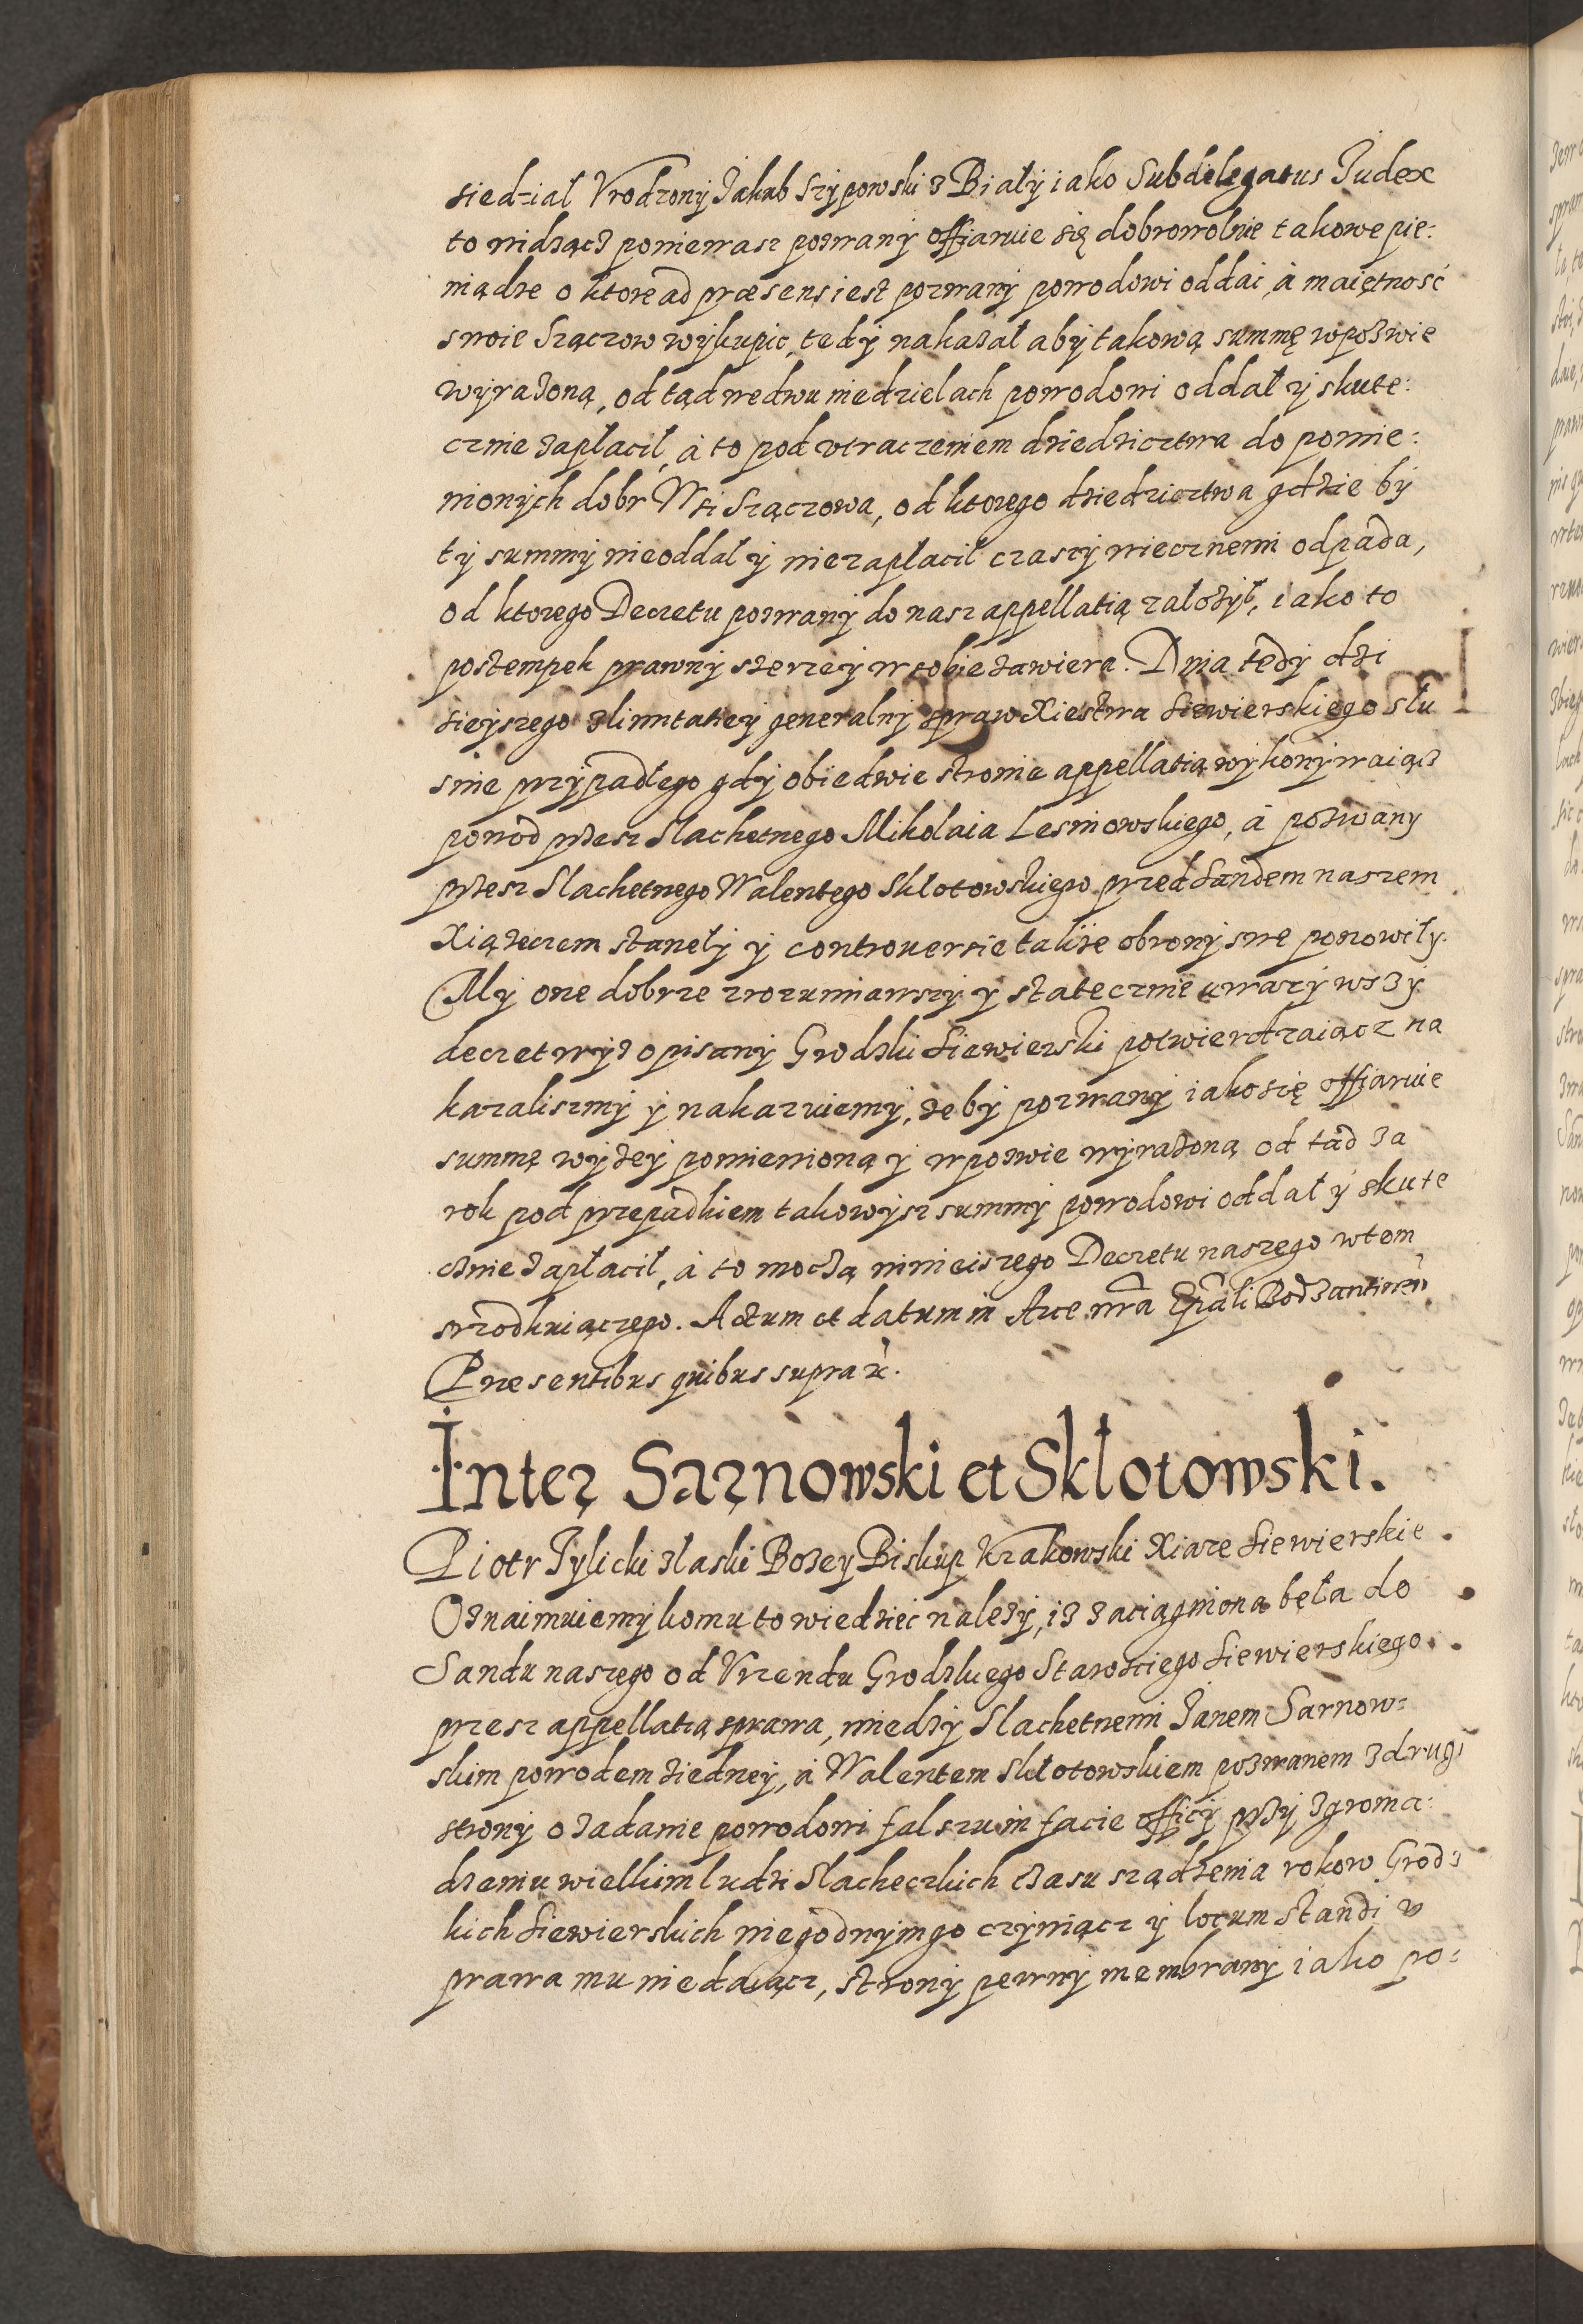 siedział Vrodzony Jakub Szypowski z Biały iako Subdelegatus Judex
to widząćz poniewasz pozwany offiaruie się dobrowolnie takowe pie:
niądze o ktore ad præsens iest pozwany powodowi oddać, á maiętność
swoie Szączow wykupic, tedy nakazał aby takową summę wpozwie
wyrażoną, od tąd wedwu niedzielach powodowi oddał y skute:
cznie zapłacił, á to pod vtraczeniem dziedzicztwa do pomie:
nionych dobr Wsi Szączowa, od ktorego dziedzicztwa gdzie by
ty summy nieoddał y niezapłacił czaszy wiecznemi odpada,
od ktorego Decretu pozwany do nasz appellatią założył, iako to
postempek prawny szerzey w sobie zawiera. Dnia tedy dzi
sieyszego zlimitatiey generalny spraw Xiestwa Siewierskiego słu
snie przypadłego gdy obiedwie stronie appellatią wykonywaiącz
powod przesz Slachetnego Mikołaia Lesniowskiego, á pozwany
przesz Slachetnego Walentego Skłotowskiego przed Sandem naszem
Xiążeczem stanęły y controuersie także obrony swe ponowiły.
My one dobrze zrozumiawszy y statecznie uwazywszy
decret wyz opisany Grodzki Siewierski potwierdzaiącz na
kazaliszmy y nakazuiemy, żeby pozwany iako się offiaruie
summę wyżey pomienioną y wpozwie wyrażoną od tad za
rok pod przepadkiem takowysz summy powodowi oddał y skute
cznie zapłacił, á to moczą ninieiszego Decretu naszego wtem
srzodkuiączego. Actum et datum in Arce nrã Epãli Bodzantinen̄
Præsentibus quibus supra &c.
Inter Sarnowski et Skłotowski.
Piotr Tylicki złaski Bozey Biskup Krakowski Xiaze Siewierskie
Oznaimuiemy komu to wiedzieć należy, iz zaciągniona beła do
Sandu naszego od Vrzendu Grodzkiego Starosciego Siewierskiego
przesz appellatią sprawa, miedzy Slachetnemi Janem Sarnow:
skim powodem ziedney, á Walentem Skłotowskiem pozwanem z drugi
strony o zadanie powodowi falszu in facie officij przy zgroma:
dzeniu wielkim ludzi Slacheczkich czasu sządzenia rokow Grodz
kich Siewierskich niegodnym go czyniącz y locum standi w
prawa mu niedaiącz, strony pewny membrany iako po: